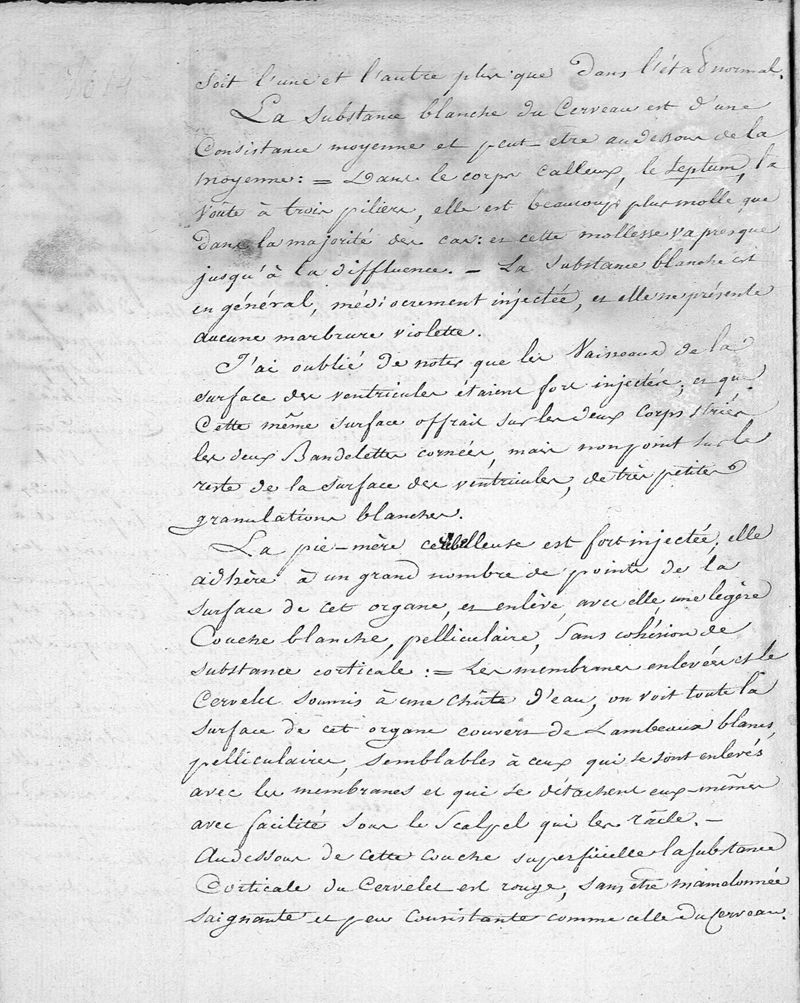 soit l'une et l'autre plus que dans l'état normal.
La substance blanche du Cerveau est d'une
Consistance moyenne et peut-etre audessous de la
moyenne: = Dans le corps calleux, le septum, la
Voûte à trois piliers, elle est beaucoup plus molle que
dans la majorité des cas: et cette mollesse va presque
jusqu'à la diffluence. – La substance blanche est
en général, médiocrement injectée, et elle ne présente
aucune marbrure violette.
J'ai oublié de noter que les Vaisseaux de la
surface des ventricules étaient fort injectés, et que
Cette même surface offrait sur les deux Corps striés
les deux Bandelettes cornées, mais non point sur le
reste de la surface des ventricules, de très petites
granulations blanches.
La pie-mère cérébelleuse est fort injectée, elle
adhère à un grand nombre de points de la
surface de cet organe, et enlève avec elle une légère
Couche blanche, pelliculaire, sans cohésion de
substance corticale: = Les membranes enlevées et le
Cervelet soumis à une chûte d'eau, on voit toute la
surface de cet organe couverte de Lambeaux blancs,
pelliculaires, semblables à ceux qui se sont enlevés
avec les membranes et qui se détachent eux-mêmes
avec facilité sous le scalpel qui les râcle. –
Audessous de cette couche superficielle la substance
Corticale du Cervelet est rouge, sans être mamelonnée
saignante et peu consistante comme celle du Cerveau.